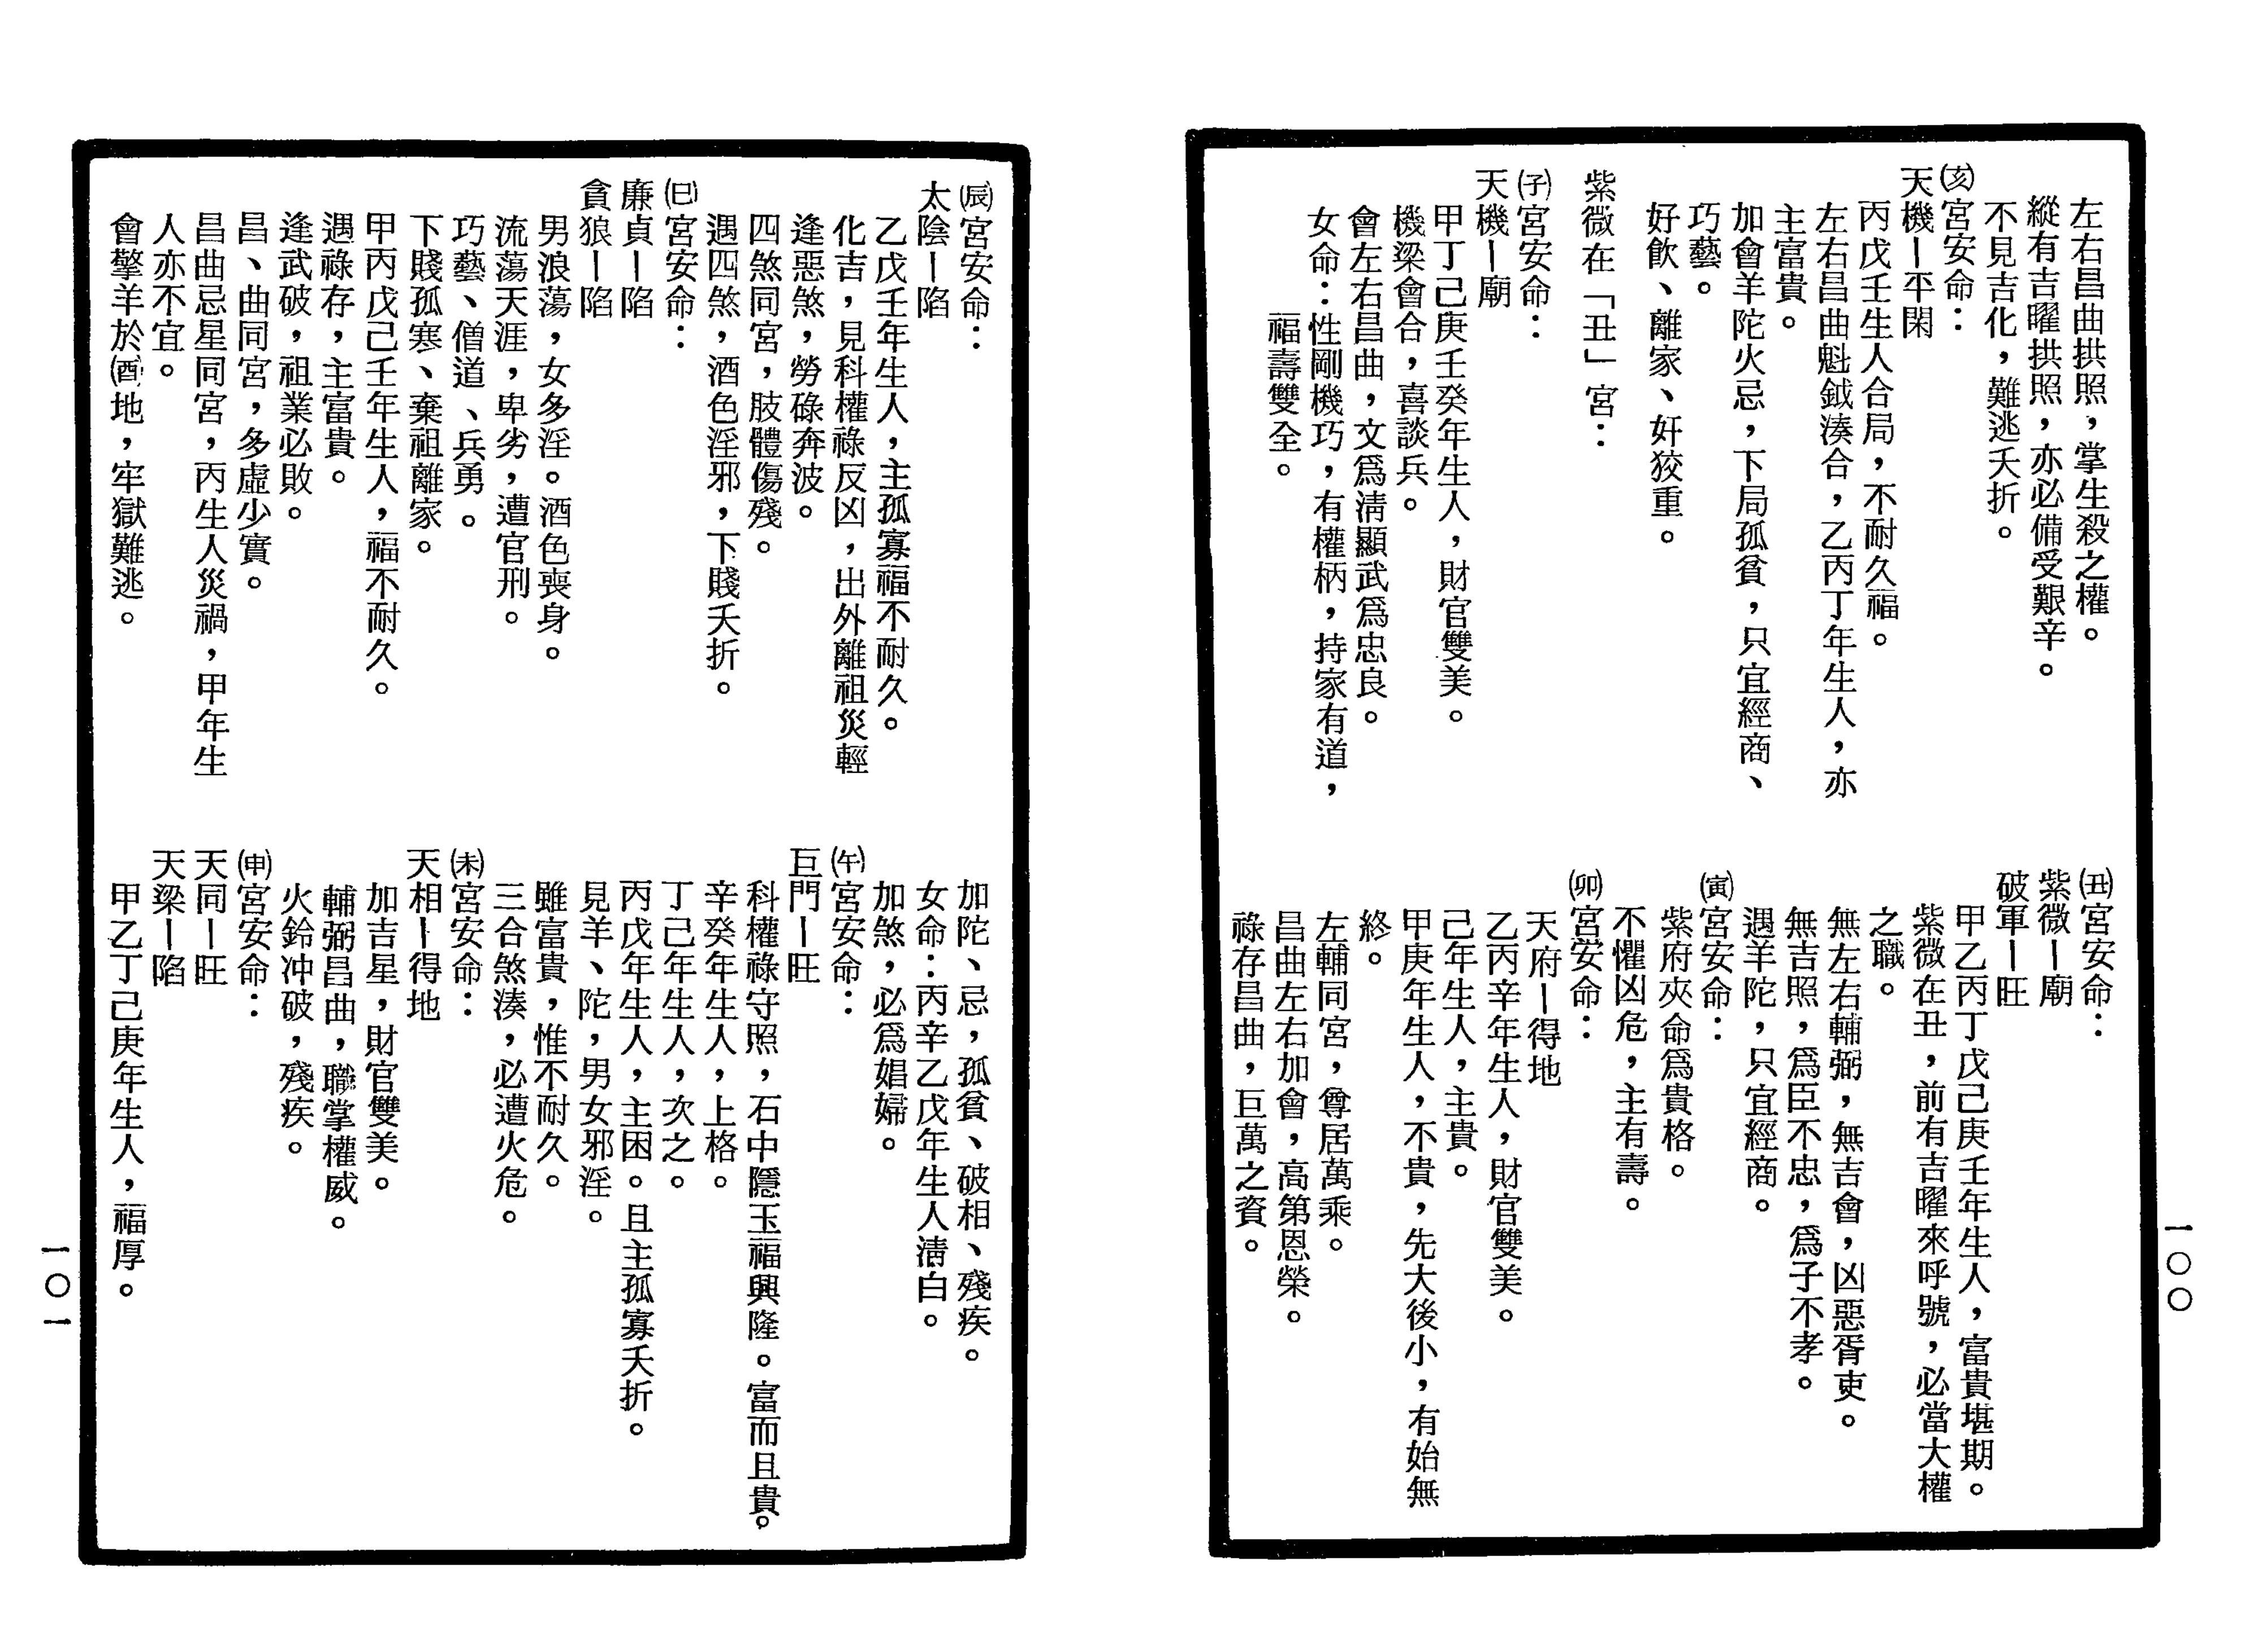 左右昌曲拱照，掌生殺之權。
縱有吉曜拱照，亦必備受艱辛。
不見吉化，難逃夭折。
㈥宮安命：
天機－平閑
丙戊壬生人合局，不耐久福。
左右昌曲魁鉞湊合，乙丙丁年生人，亦
主富貴。
加會羊陀火忌，下局孤貧，只宜經商、
巧藝。
好飲、離家、奸狡重。
紫微在「丑」宮：
(子)宮安命：
天機－廟
甲丁己庚壬癸年生人，財官雙美。
機梁會合，喜談兵。
會左右昌曲，文爲淸顯武爲忠良。
女命：性剛機巧，有權柄，持家有道，
福壽雙全。
(丑)宮安命：
紫微－廟
破軍－旺
甲乙丙丁戊己庚壬年生人，富貴堪期。
紫微在丑，前有吉曜來呼號，必當大權
之職。
無左右輔弼，無吉會，凶惡胥吏。
無吉照，爲臣不忠，爲子不孝。
遇羊陀，只宜經商。
(寅)宮安命：
紫府夾命爲貴格。
不懼凶危，主有壽。
(卯)宮安命：
天府－得地
乙丙辛年生人，財官雙美。
己年生人，主貴。
甲庚年生人，不貴，先大後小，有始無
終。
左輔同宮，尊居萬乘。
昌曲左右加會，高第恩榮。
祿存昌曲，巨萬之資。
一〇〇
(辰)宮安命：
太陰－陷
乙戊壬年生人，主孤寡福不耐久。
化吉，見科權祿反凶，出外離祖災輕
逢惡煞，勞碌奔波。
四煞同宮，肢體傷殘。
遇四煞，酒色淫邪，下賤夭折。
(巳)宮安命：
廉貞－陷
貪狼－陷
男浪蕩，女多淫。酒色喪身。
流蕩天涯，卑劣，遭官刑。
巧藝、僧道、兵勇。
下賤孤寒、棄祖離家。
甲丙戊己壬年生人，福不耐久。
遇祿存，主富貴。
逢武破，祖業必敗。
昌、曲同宮，多虛少實。
昌曲忌星同宮，丙生人災禍，甲年生
人亦不宜。
會擎羊於(酉)地，牢獄難逃。
加陀、忌，孤貧、破相、殘疾。
女命：丙辛乙戊年生人淸白。
加煞，必爲娼婦。
(午)宮安命：
巨門－旺
科權祿守照，石中隱玉福興隆。富而且貴。
辛癸年生人，上格。
丁己年生人，次之。
丙戊年生人，主困。且主孤寡夭折。
見羊、陀，男女邪淫。
雖富貴，惟不耐久。
三合煞湊，必遭火危。
(未)宮安命：
天相－得地
加吉星，財官雙美。
輔弼昌曲，職掌權威。
火鈴冲破，殘疾。
(申)宮安命：
天同－旺
天梁－陷
甲乙丁己庚年生人，福厚。
一〇一